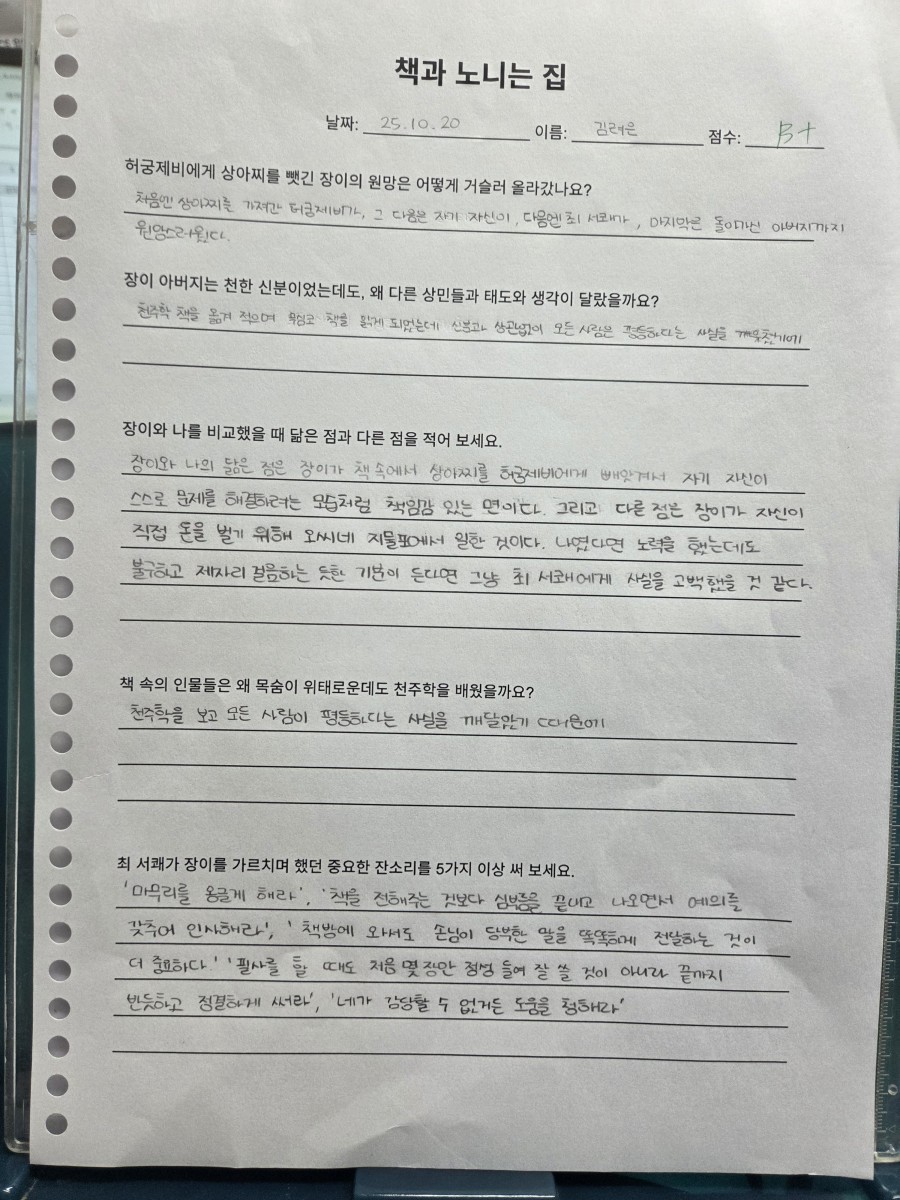 책과 노니는 집
날짜: 25.10.20 이름: 김려은 점수: B+
허궁제비에게 상아찌를 뺏긴 장이의 원망은 어떻게 거슬러 올라갔나요?
처음엔 상아찌를 가져간 허궁제비가, 그 다음은 자기 자신이, 다음엔 최 서쾌가, 마지막은 돌아가신 아버지까지
원망스러웠다.
장이 아버지는 천한 신분이었는데도, 왜 다른 상민들과 태도와 생각이 달랐을까요?
천주학 책을 옮겨 적으며 무심코 책을 읽게 되었는데 신분과 상관없이 모든 사람은 평등하다는 사실을 깨우쳤기에
장이와 나를 비교했을 때 닮은 점과 다른 점을 적어 보세요.
장이와 나의 닮은 점은 장이가 책 속에서 상아찌를 허궁제비에게 빼앗겨서 자기 자신이
스스로 문제를 해결하려는 모습처럼 책임감 있는 면이다. 그리고 다른 점은 장이가 자신이
직접 돈을 벌기 위해 오씨네 지물포에서 일한 것이다. 나였다면 노력을 했는데도
불구하고 제자리 걸음하는 듯한 기분이 든다면 그냥 최 서쾌에게 사실을 고백했을 것 같다.
책 속의 인물들은 왜 목숨이 위태로운데도 천주학을 배웠을까요?
천주학을 보고 모든 사람이 평등하다는 사실을 깨달았기 때문에
최 서쾌가 장이를 가르치며 했던 중요한 잔소리를 5가지 이상 써 보세요.
'마무리를 옹글게 해라', '책을 전해주는 것보다 심부름을 끝내고 나오면서 예의를
갖추어 인사해라', '책방에 와서도 손님이 당부한 말을 똑똑하게 전달하는 것이
더 중요하다' '필사를 할 때도 처음 몇 장만 정성 들여 잘 쓸 것이 아니라 끝까지
반듯하고 정결하게 써라', '네가 감당할 수 없거든 도움을 청해라'